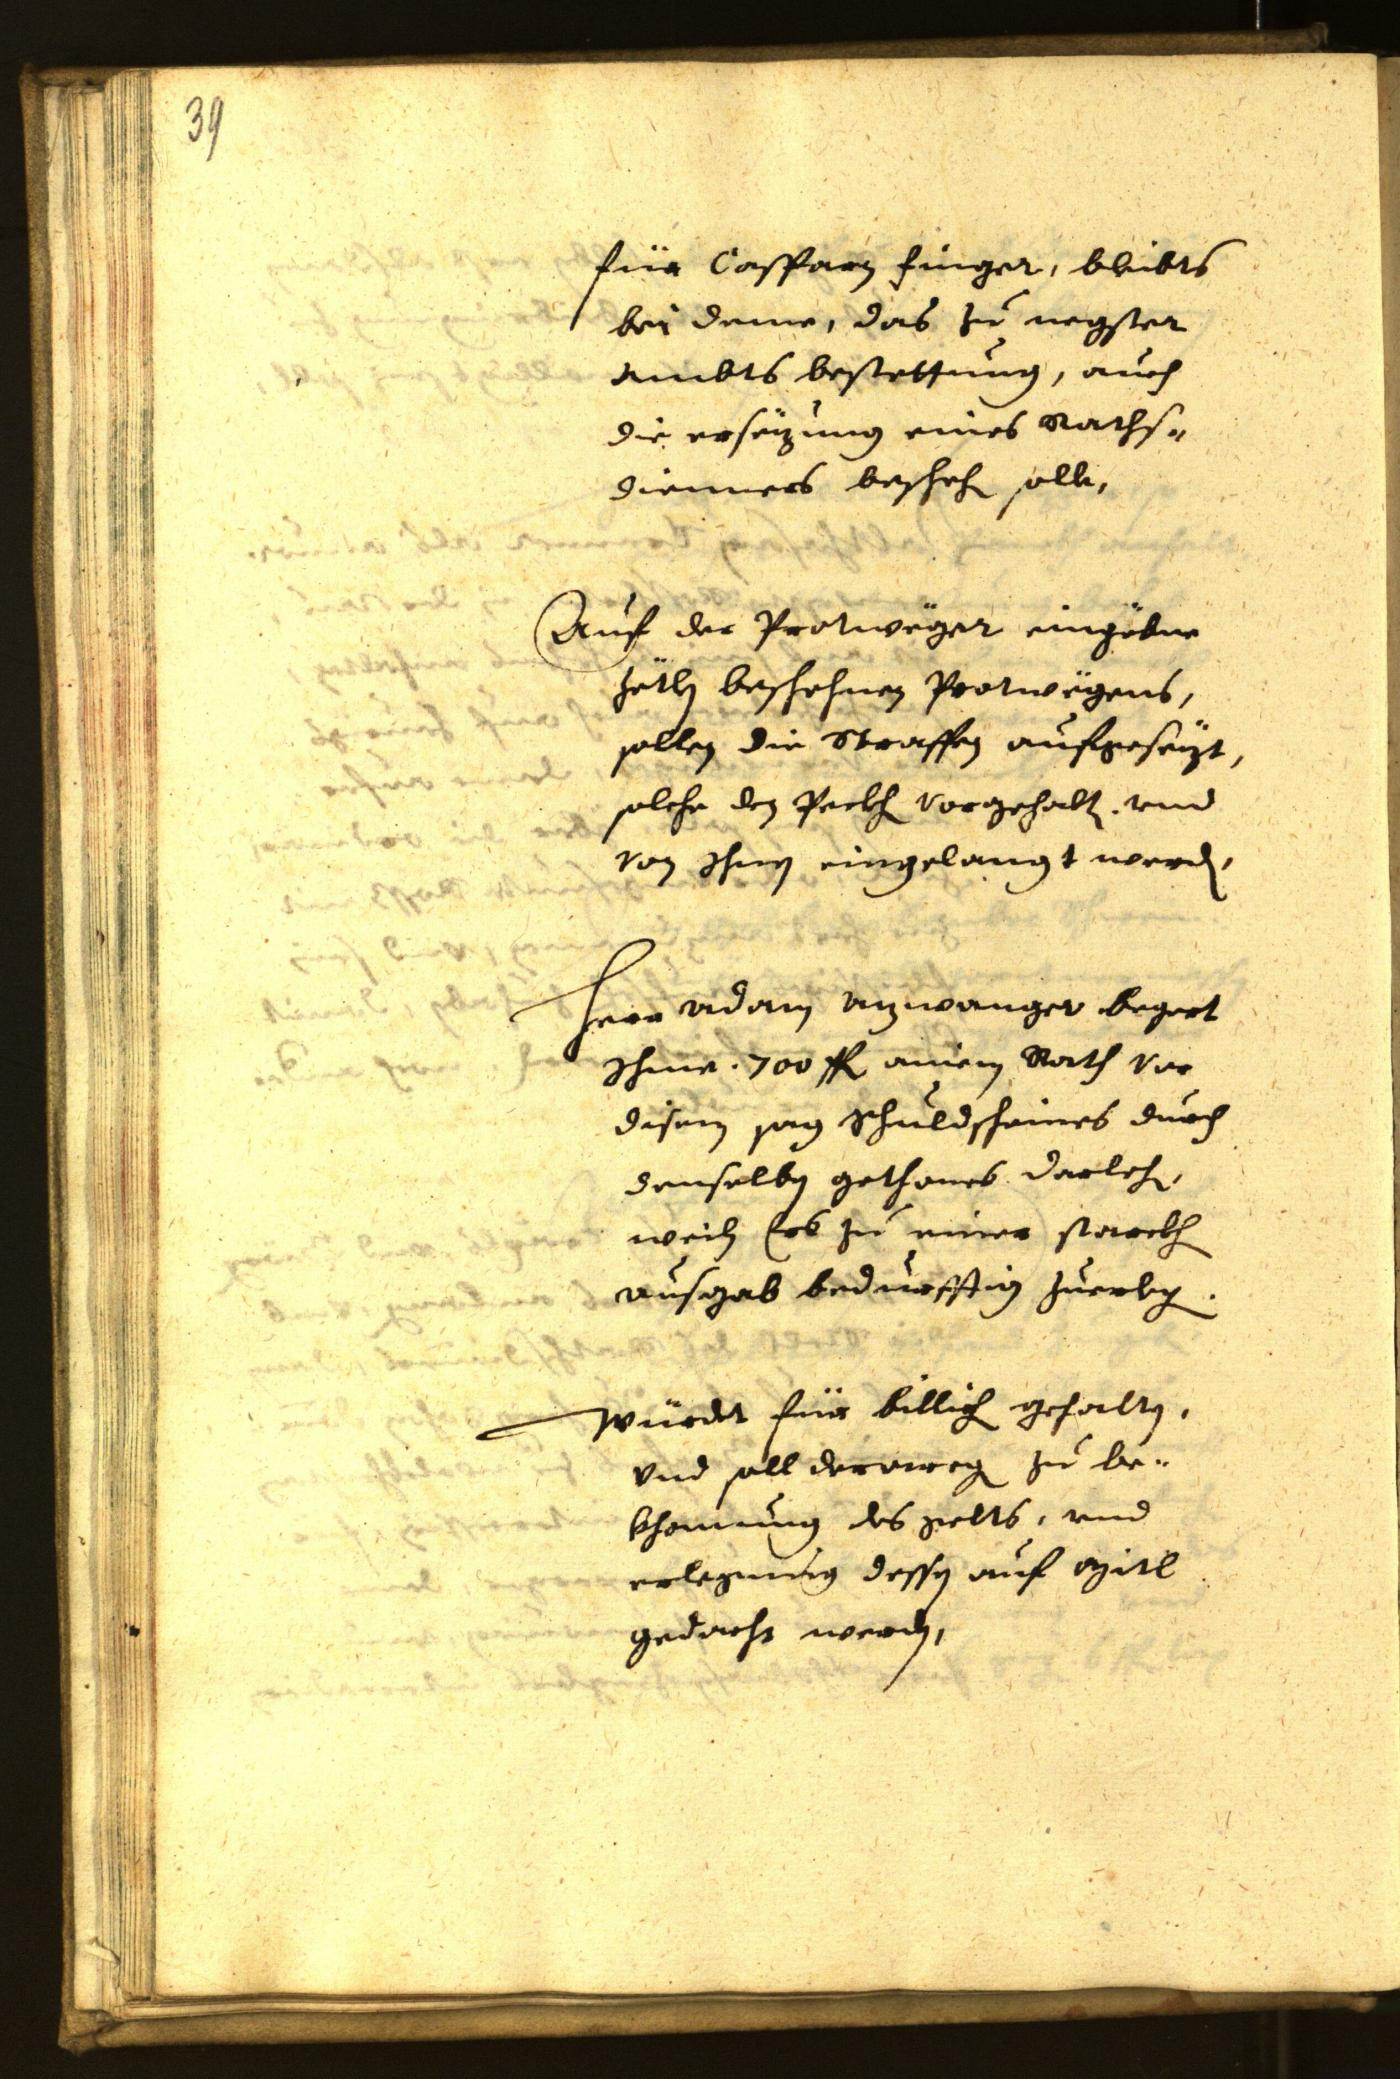 39
für Casparn singer, bleibts
bei deme, das zu negster
Ambts bestettung, auch
die ersezung eines Raths¬
dienners bescheh solle,
Auf der Protweger eingebne
zetln beschehnen Protwegens,
sollen die Straffen aufgesezt,
solche den Peckh vorgehalt. und
von Ihnen eingelangt werd,
Herr Adam Anzwanger begert
Ihme. 700 fl ainem Rath vor
disem sag Schuldscheines durch
denselben gethones darleh,
weiln Ers zu einer starckh
Ausgab bedürfftig zuerleg.
Würdet für billich gehalten,
Und soll derowegen zu be¬
khomung des gelts, und
erlegung dessen auf mitl
gedacht werden,